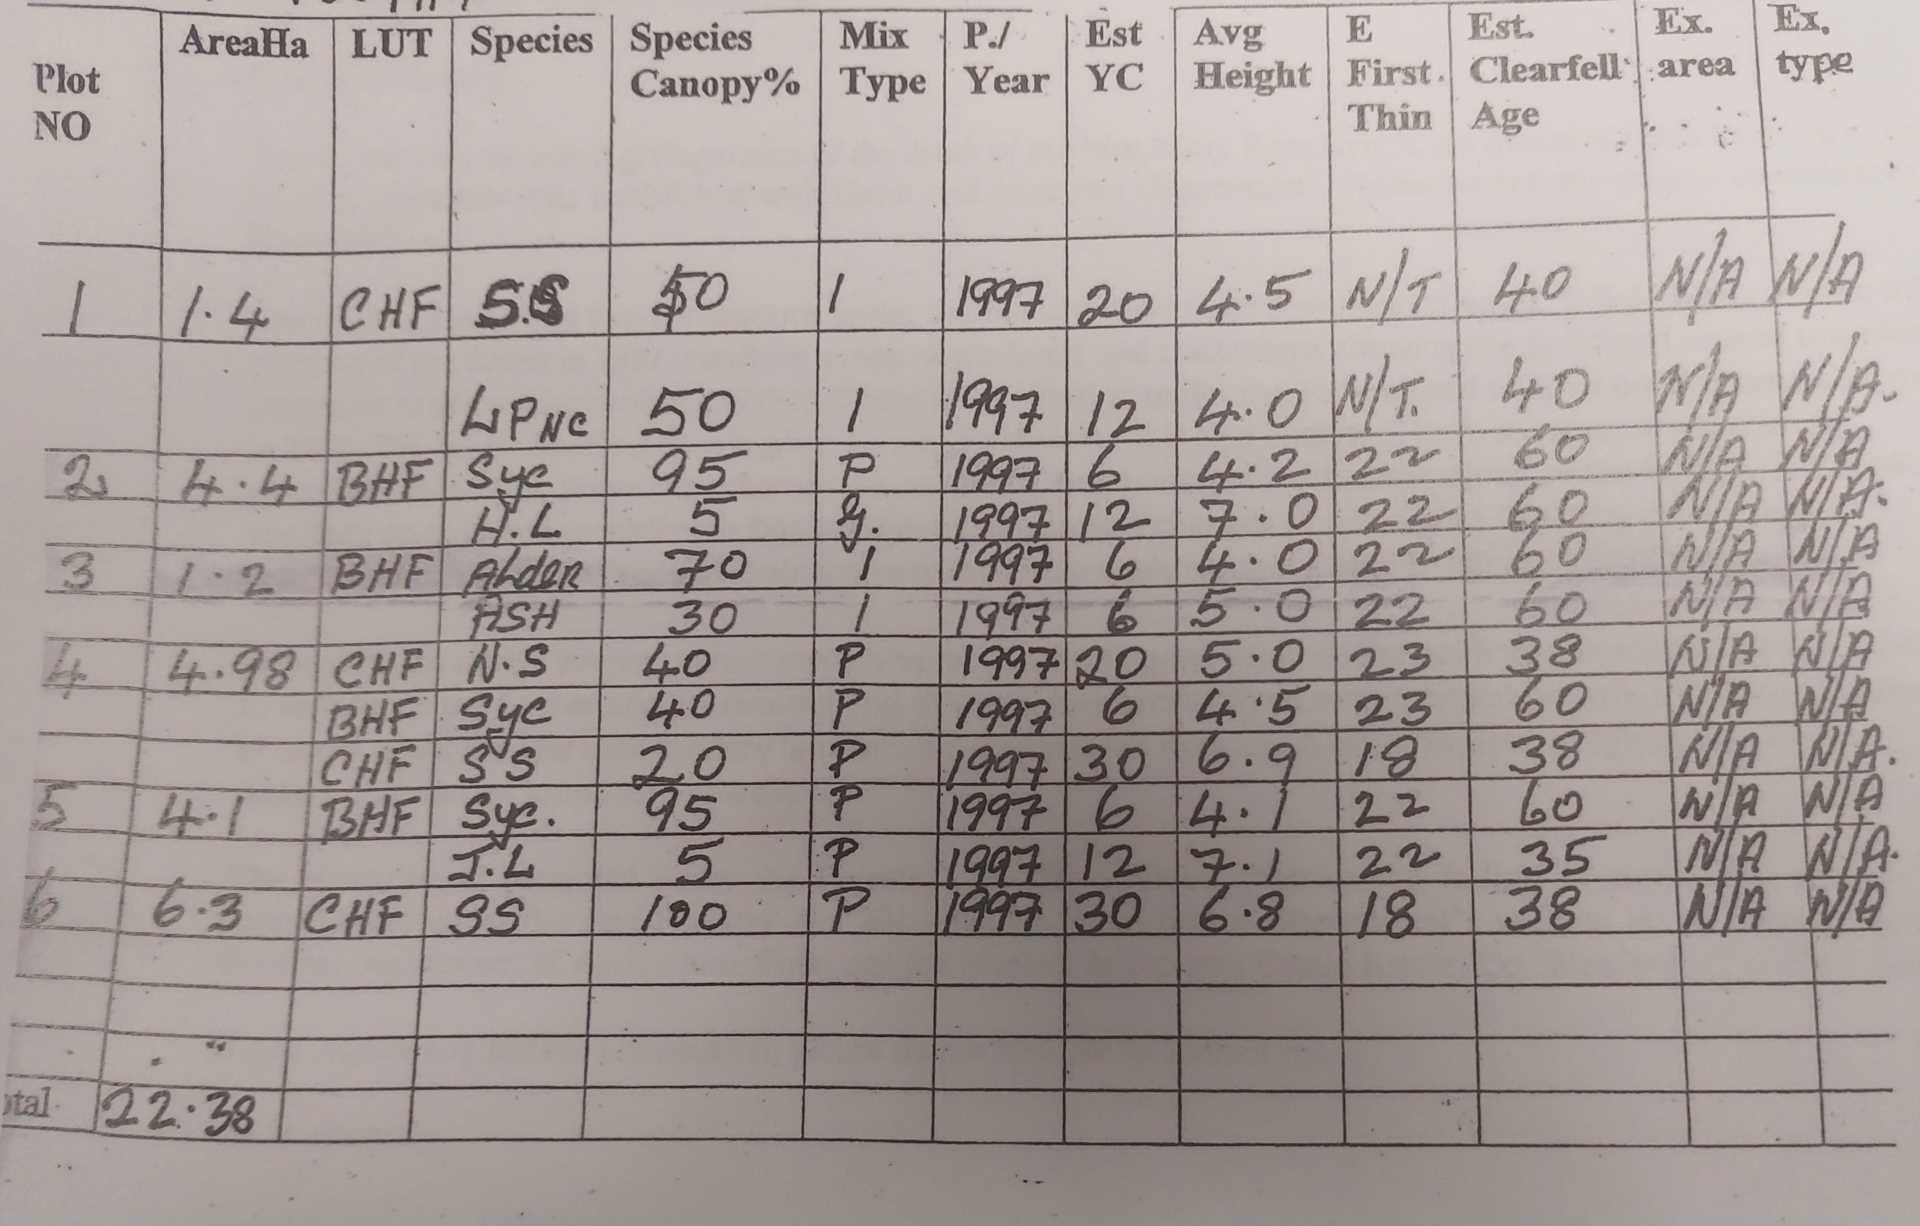 Plot NO AreaHa LUT Species Species Canopy% Mix Type P./ Year Est YC Avg Height E First Thin Est. Clearfell Age Ex. area Ex. type
1 1.4 CHF S.S 50 1 1997 20 4.5 N/T 40 N/A N/A
LPNC 50 1 1997 12 4.0 N/T. 40 N/A N/A.
2 4.4 BHF Syc 95 P 1997 6 4.2 22 60 N/A N/A
H.L 5 g. 1997 12 7.0 22 60 N/A N/A.
3 1.2 BHF ALdER 70 1 1997 6 4.0 22 60 N/A N/A
ASH 30 1 1997 6 5.0 22 60 N/A N/A
4 4.98 CHF N.S 40 P 1997 20 5.0 23 38 N/A N/A
BHF Syc 40 P 1997 6 4.5 23 60 N/A N/A
CHF SS 20 P 1997 30 6.9 18 38 N/A N/A.
5 4.1 BHF Syc. 95 P 1997 6 4.1 22 60 N/A N/A
J.L 5 P 1997 12 7.1 22 35 N/A N/A.
6 6.3 CHF SS 100 P 1997 30 6.8 18 38 N/A N/A
otal 22.38